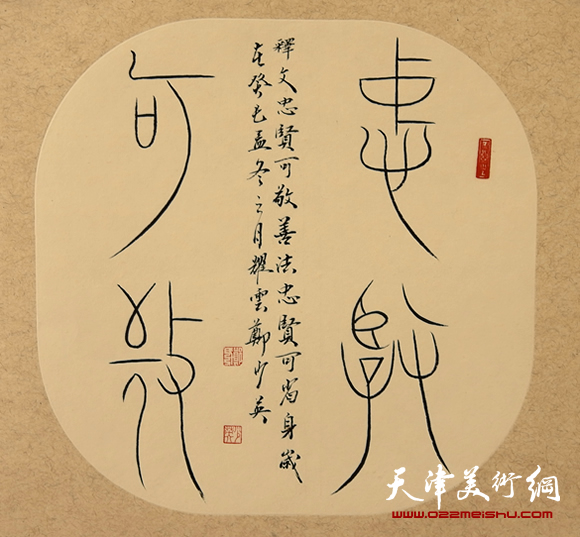 忠賢
可敬
釋文忠賢可敬善法忠賢可省身歲
在癸巳孟冬之月耀雲鄭少英
天津美術網
www.022meishu.com